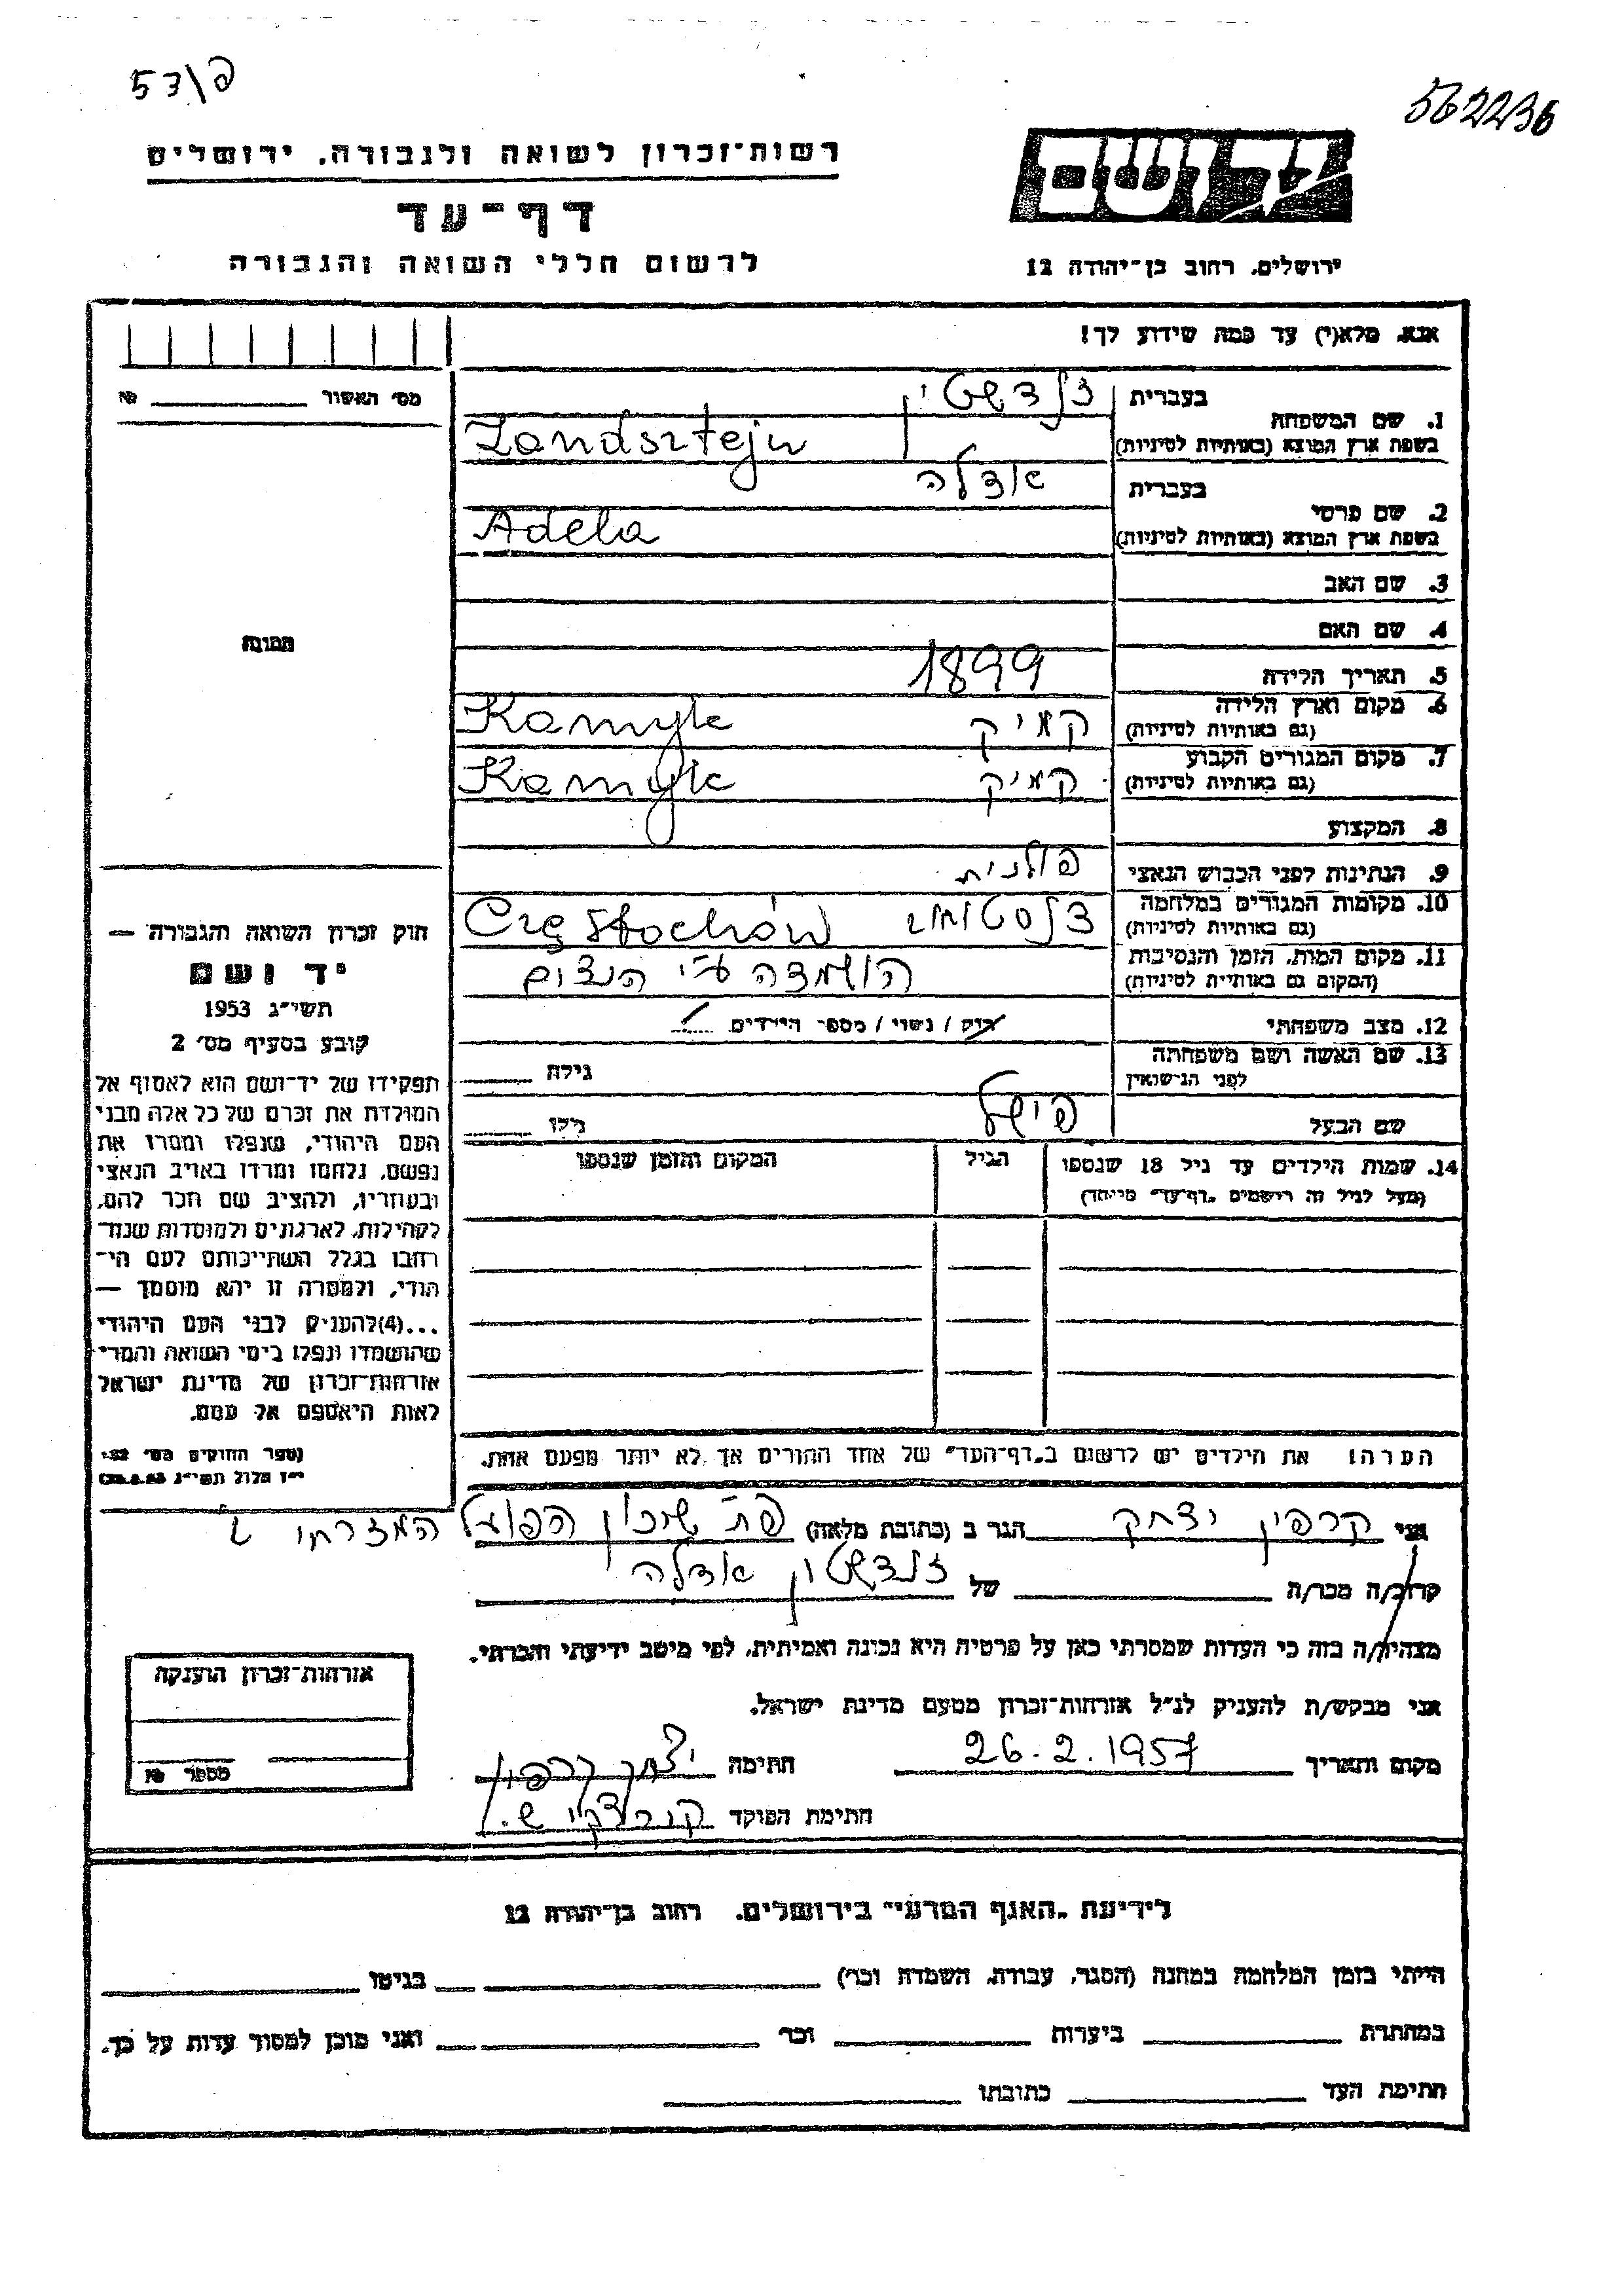 פ/53
562236
רשות־זכרון לשואה ולגבורה, ירושלים
דף־עד
לרשום חללי השואה והגבורה
יד ושם
ירושלים, רחוב בן־יהודה 12
אנא, מלא(י) עד כמה שידוע לך!
מס׳ האשור № 
1. שם המשפחה בעברית זנדשטיין
בשפת ארץ המוצא (באותיות לטיניות) Zandsztejn
2. שם פרטי בעברית אדלה
בשפת ארץ המוצא (באותיות לטיניות) Adela
3. שם האב
4. שם האם
5. תאריך הלידה 1899
6. מקום וארץ הלידה (גם באותיות לטיניות) קמיק Kamyk
7. מקום המגורים הקבוע (גם באותיות לטיניות) קמיק Kamyk
8. המקצוע
9. הנתינות לפני הכבוש הנאצי פולנית
10. מקומות המגורים במלחמה (גם באותיות לטיניות) צנסטוחוב Częstochów
11. מקום המות, הזמן והנסיבות (המקום גם באותיות לטיניות) הושמדה ע״י הנצים
12. מצב משפחתי רוק / נשוי / מספר הילדים
13. שם האשה ושם משפחתה לפני הנישואין גילה
שם הבעל פישל גילו
14. שמות הילדים עד גיל 18 שנספו הגיל המקום והזמן שנספו
(מעל לגיל זה רישמים „דף־עד״ מייחד)
הערה: את הילדים יש לרשום ב„דף־העד״ של אחד ההורים אך לא יותר מפעם אחת.
תמונה
חוק זכרון השואה והגבורה —
יד ושם
תשי״ג 1953
קובע בסעיף מס׳ 2
תפקידו של יד־ושם הוא לאסוף אל
המולדת את זכרם של כל אלה מבני
העם היהודי, שנפלו ומסרו את
נפשם, נלחמו ומרדו באויב הנאצי
ובעוזריו, ולהציב שם וזכר להם,
לקהילות, לארגונים ולמוסדות שנח־
רבו בגלל השתייכותם לעם הי־
הודי, ולמטרה זו יהא מוסמך —
...(4)להעניק לבני העם היהודי
שהושמדו ונפלו בימי השואה והמרי
אזרחות־זכרון של מדינת ישראל
לאות היאספם אל עמם.
(ספר החוקים מס׳ 132
י״ז אלול תשי״ג 28.8.53)
אני קרפין יצחק הגר ב (כתובת מלאה) פת שיכון הפועל המזרחי
קרוב/ה מכר/ה של זנדשטיין אדלה
מצהיר/ה בזה כי העדות שמסרתי כאן על פרטיה היא נכונה ואמיתית, לפי מיטב ידיעתי והכרתי.
אני מבקש/ת להעניק לנ״ל אזרחות־זכרון מטעם מדינת ישראל.
מקום ותאריך 26.2.1957 חתימה יצחק קרפין
חתימת הפוקד
אזרחות־זכרון הוענקה
מספר №
לידיעת „האגף המדעי״ בירושלים, רחוב בן־יהודה 12
הייתי בזמן המלחמה במחנה (הסגר, עבודה, השמדה וכו׳) בגיטו
במחתרת ביערות וכו׳ ואני מוכן למסור עדות על כך.
חתימת העד כתובתו